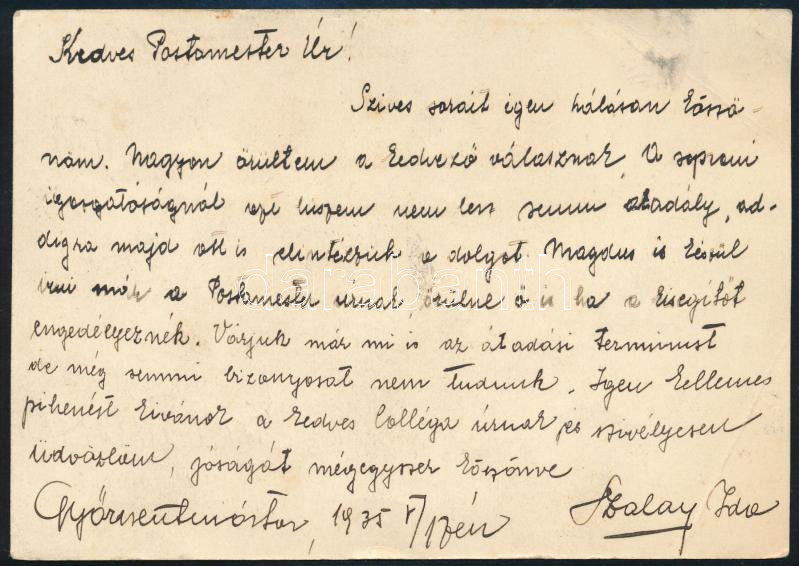 Kedves Postamester Úr!
Szives sorait igen hálásan köszö-
nöm. Nagyon örültem a kedvező válasznak. A soproni
igazgatóságnál azt hiszem nem lesz semmi akadály, ad-
digra majd ott is elintézzük a dolgot. Magdus is készül
irni már a Postamester úrnak, örülne ő is ha a kisegítőt
engedélyeznék. Várjuk már mi is az átadási terminust
de még semmi bizonyosat nem tudunk. Igen kellemes
pihenést kivánok a kedves Colléga úrnak és szivélyesen
üdvözlöm, jóságát mégegyszer köszönve
Győrszentmárton, 1935 V/17én Szalay Ida
darabanth